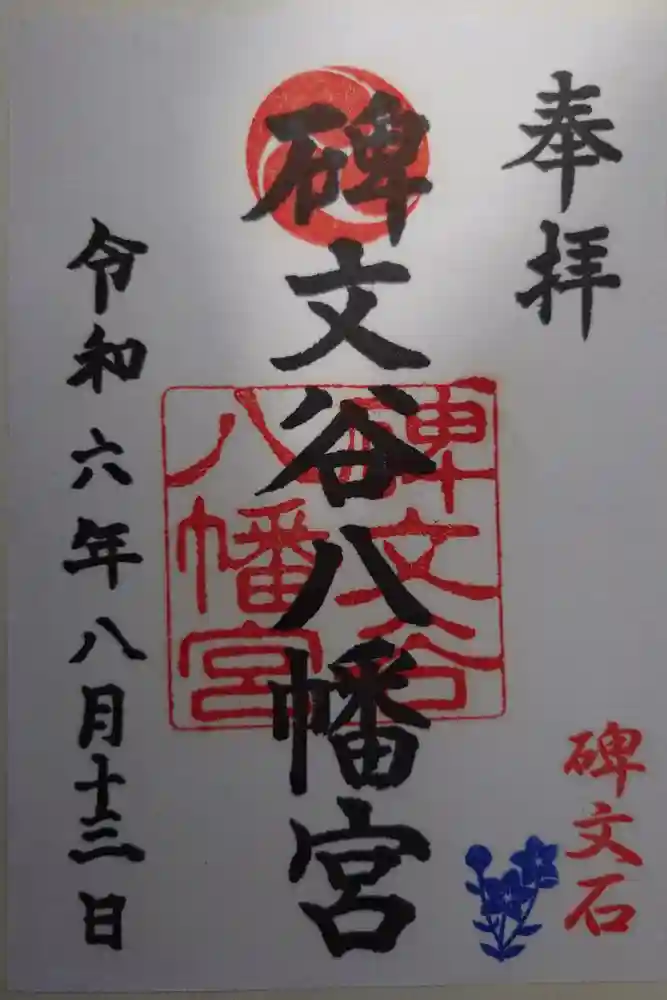 奉拝
碑文石
碑文谷八幡宮
碑文谷
八幡宮
令和六年八月十三日